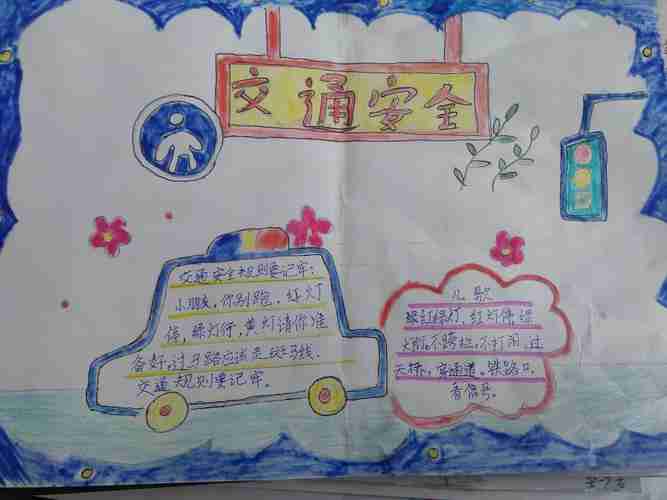 交通安全
交通安全规则要记牢:
小朋友,你别跑,红灯
停,绿灯行,黄灯请你准
备好,过马路应该走斑马线.
交通规则要记牢。
儿歌
红灯停,绿
不跨栏,不打闹,过
天桥,穿通道,铁路口,
看信号。